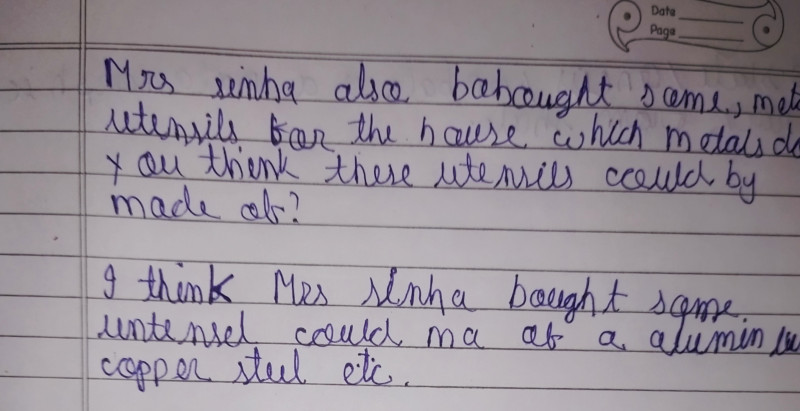 Date
Page
Mrs sinha also babought some, meta
utensils for the house which metals do
you think these utensils could by
made of?
I think Mrs sinha bought some
untensel could ma of a alumin
copper steel etc.